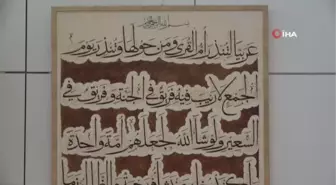 بسم الله الرحمن الرحيم
İHA
عربيا لتنذر أم القرى ومن حولها وتنذر يوم
الجمع لا ريب فيه فريق في الجنة وفريق في
السعير ولو شاء الله لجعلهم أمة واحدة